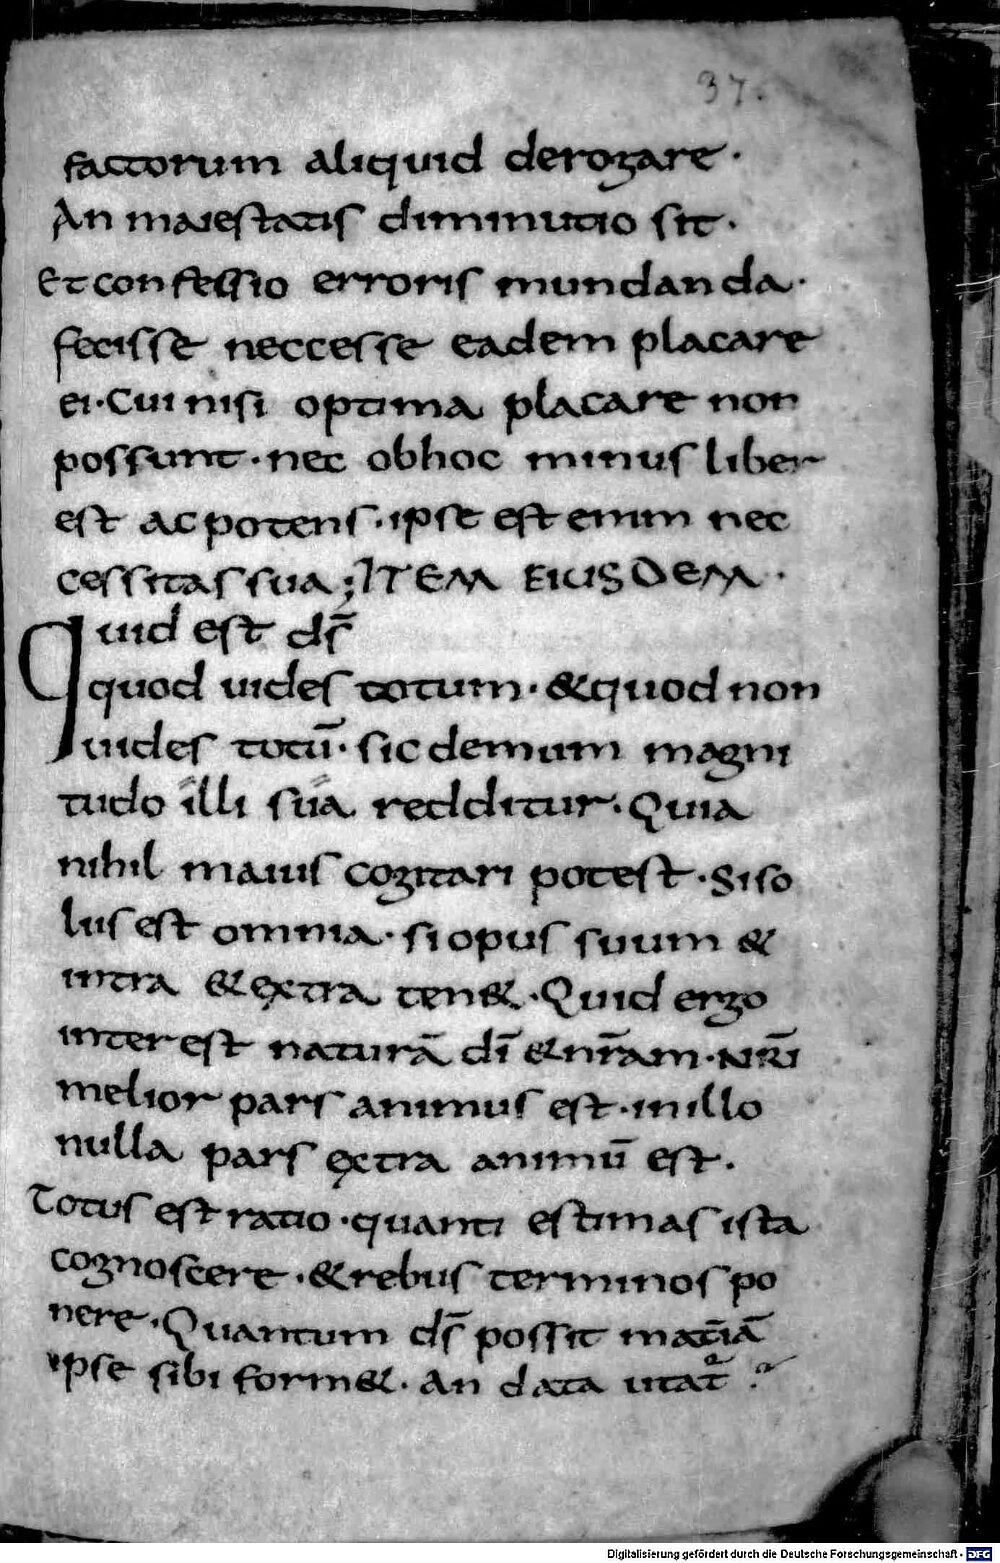 37.
factorum aliquid derogare·
An maiestatis diminutio sit·
Et confessio erroris mundanda·
fecisse neccesse eadem placare
ei· Cui nisi optima placare non
possunt· nec obhoc minus liber
est ac potens· ipse est enim nec
cessitas sua; ITEM EIUSDEM·
Quid est ds̄
quod uides totum· &quod non
uides totū· sic demum magni
tudo illi sua redditur· Quia
nihil maius cogitari potest· Si so
lus est omnia· si opus suum &
intra & extra ten&· Quid ergo
interest naturā dī &nr̄am· Nr̄i
melior pars animus est· inillo
nulla pars extra animū est·
Totus est ratio· quanti estimas ista
cognoscere· &rebus terminos po
nere· Quantum ds̄ possit mat̄iā
ipse sibi form&· An data utat᷑?
Digitalisierung gefördert durch die Deutsche Forschungsgemeinschaft - DFG